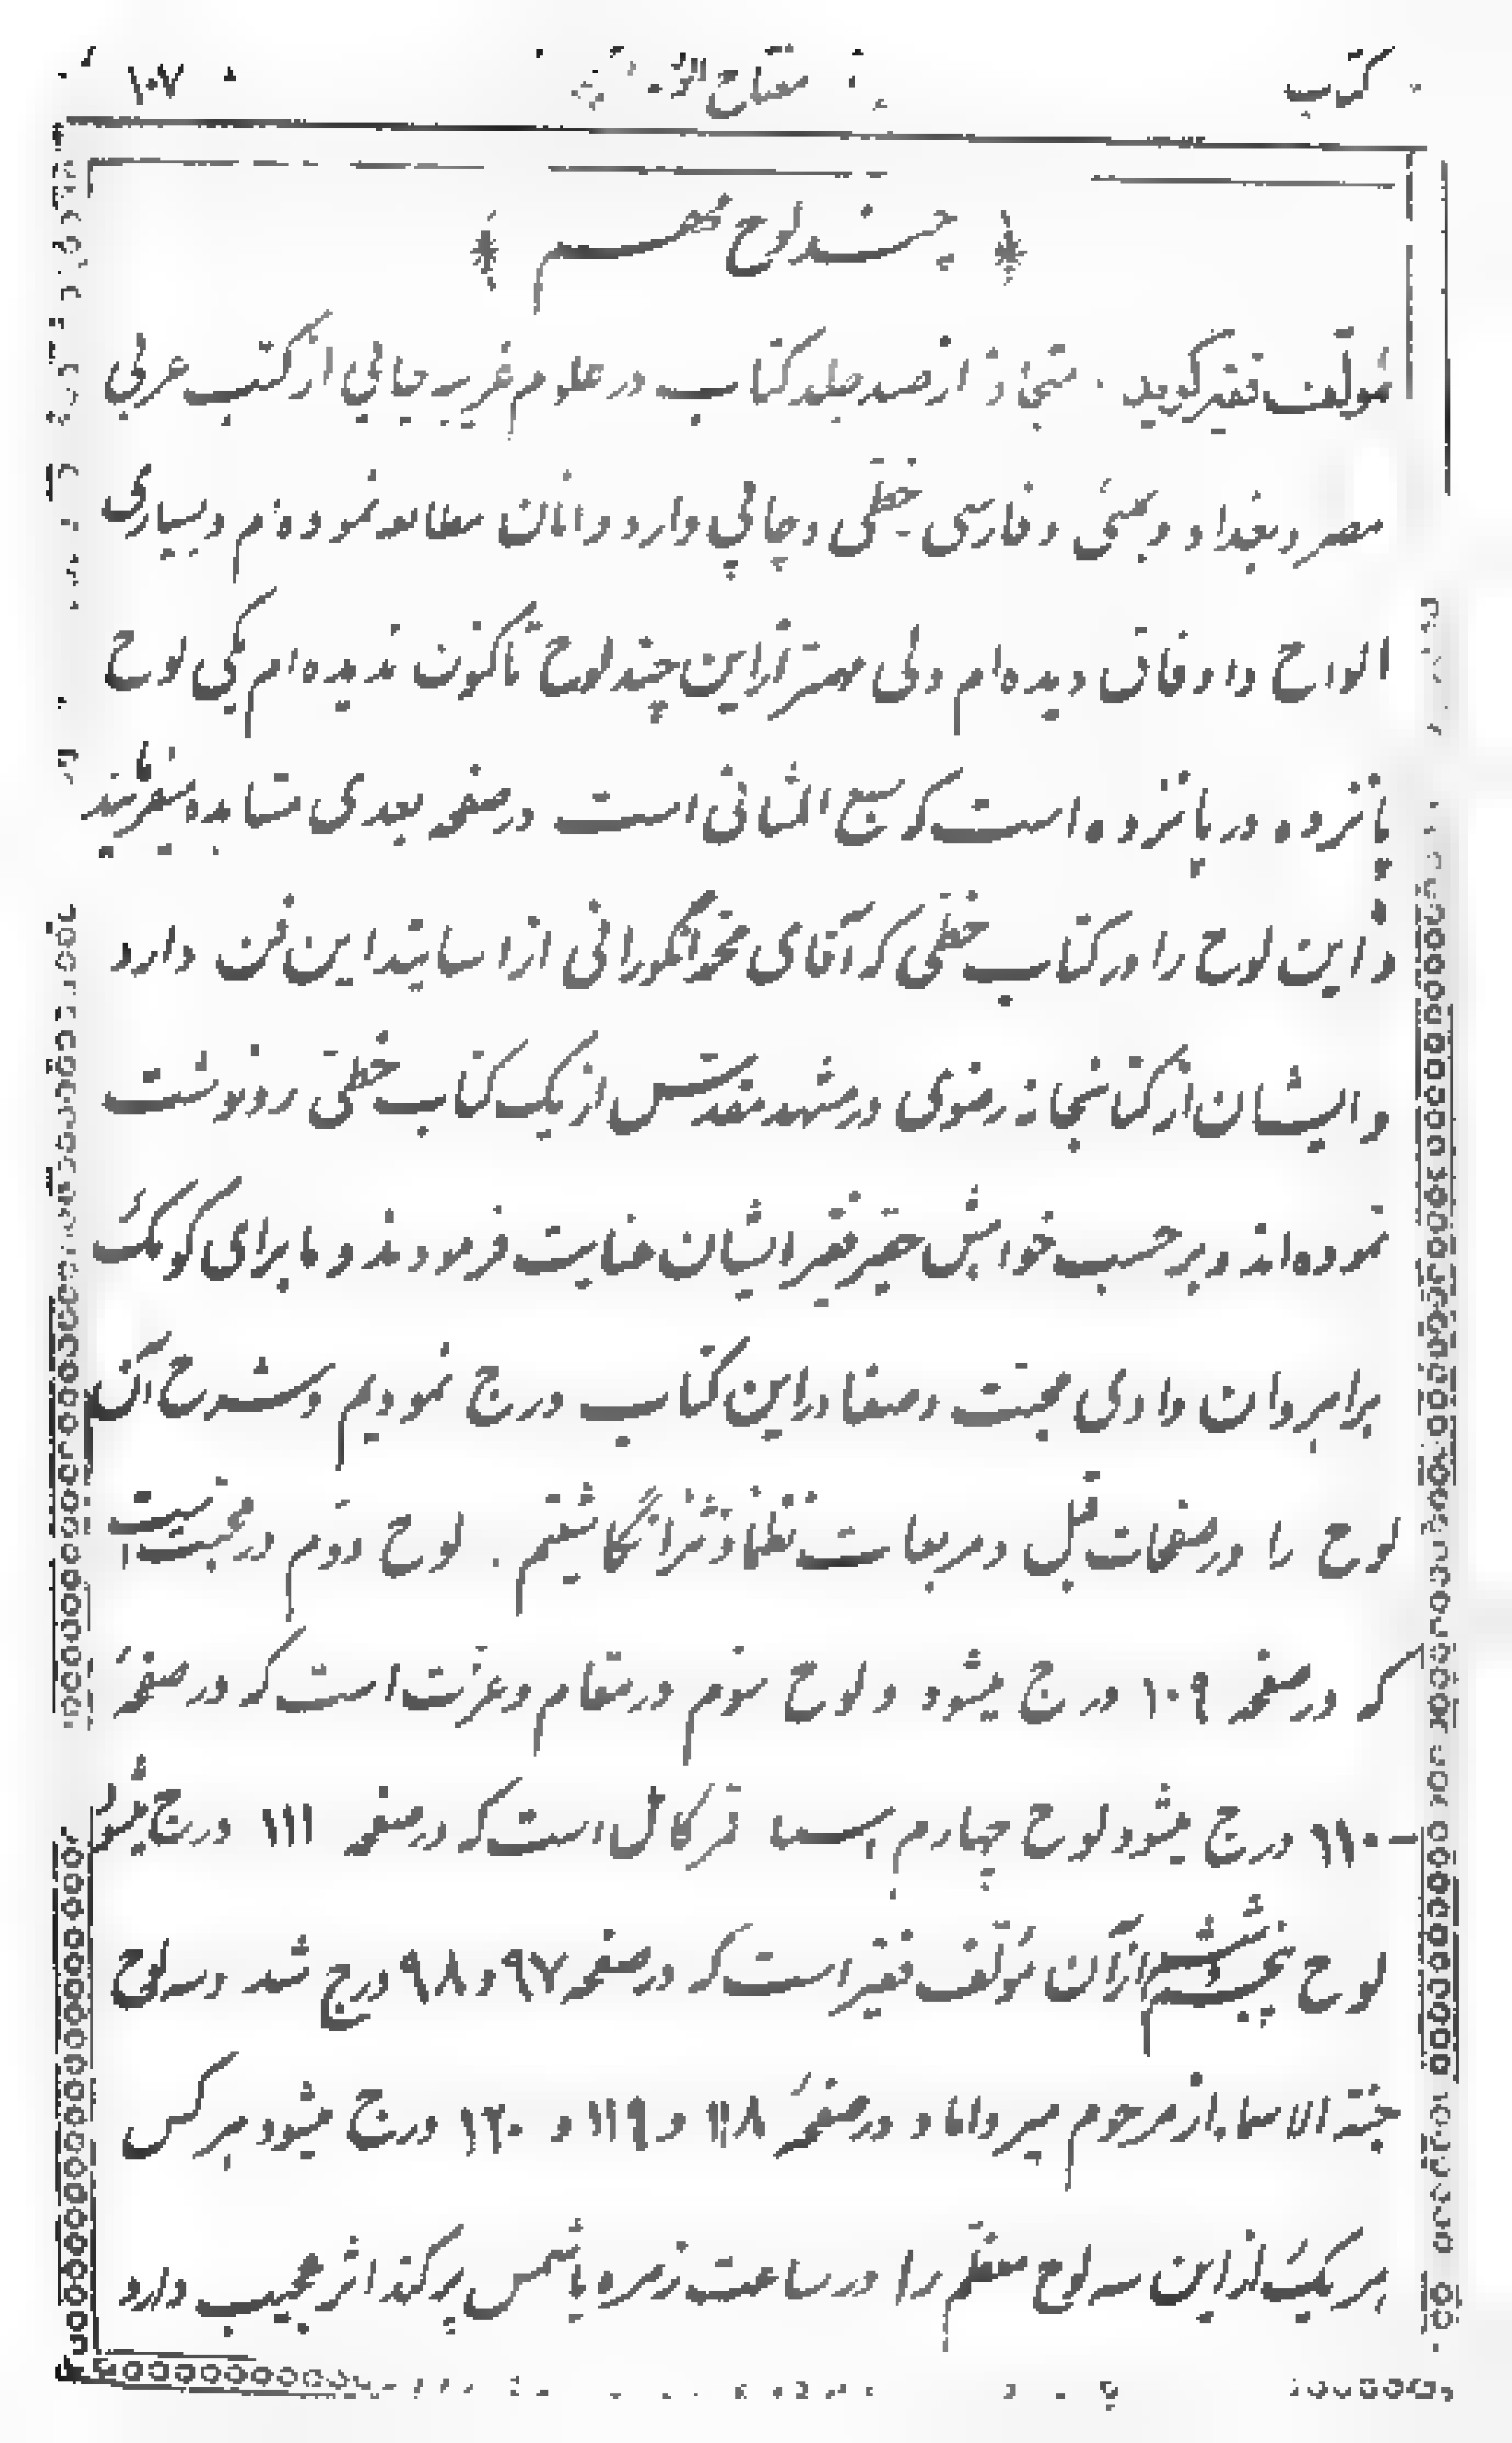 کتاب مفتاح ۱۰۷
چند لوح مهم
مؤلف فقیر گوید . متجاوز از صد جلد کتاب در علوم غریبه چاپی از کتب عربی
مصر و بغداد و بمبئی و فارسی خطی و چاپی دارد و اتان مطالعه نموده‌ام و بسیاری
الواح و اوفاق دیده‌ام ولی مهمتر از این چند لوح تاکنون ندیده‌ام یکی لوح
پانزده در پانزده است که سبع المثانی است در صفحه بعدی مشاهده میفرمائید
و این لوح را در کتاب خطی که آقای انگورانی از اساتید این فن دارد
و ایشان از کتابخانه رضوی در مشهد مقدس از یک کتاب خطی رونوشت
نموده‌اند و بر حسب خواهش حقیر فقیر ایشان عنایت فرمودند و ما برای کومک
برابروان وادی محبت و صفا در این کتاب درج نمودیم و شرح آن
لوح را در صفحات قبل و مربعات نظماً و نثراً نگاشتیم . لوح دوم در محبت است
که در صفحه ۱۰۹ درج میشود و لوح سوم در مقام و عزت است که در صفحهٔ
۱۱۰ درج میشود لوح چهارم اسماء قمر کامل است که در صفحه ۱۱۱ درج میشود
لوح پنجم و ششم از آن مؤلف فقیر است که در صفحه ۹۷ و ۹۸ درج شد و سه لوح
جنة الاسماء از مرحوم میرداماد و در صفحهٔ ۱۱۸ و ۱۱۹ و ۱۲۰ درج میشود هر کس
هر یک از این سه لوح معظم را در ساعت زهره یا شمس پر کند اثر عجیب دارد